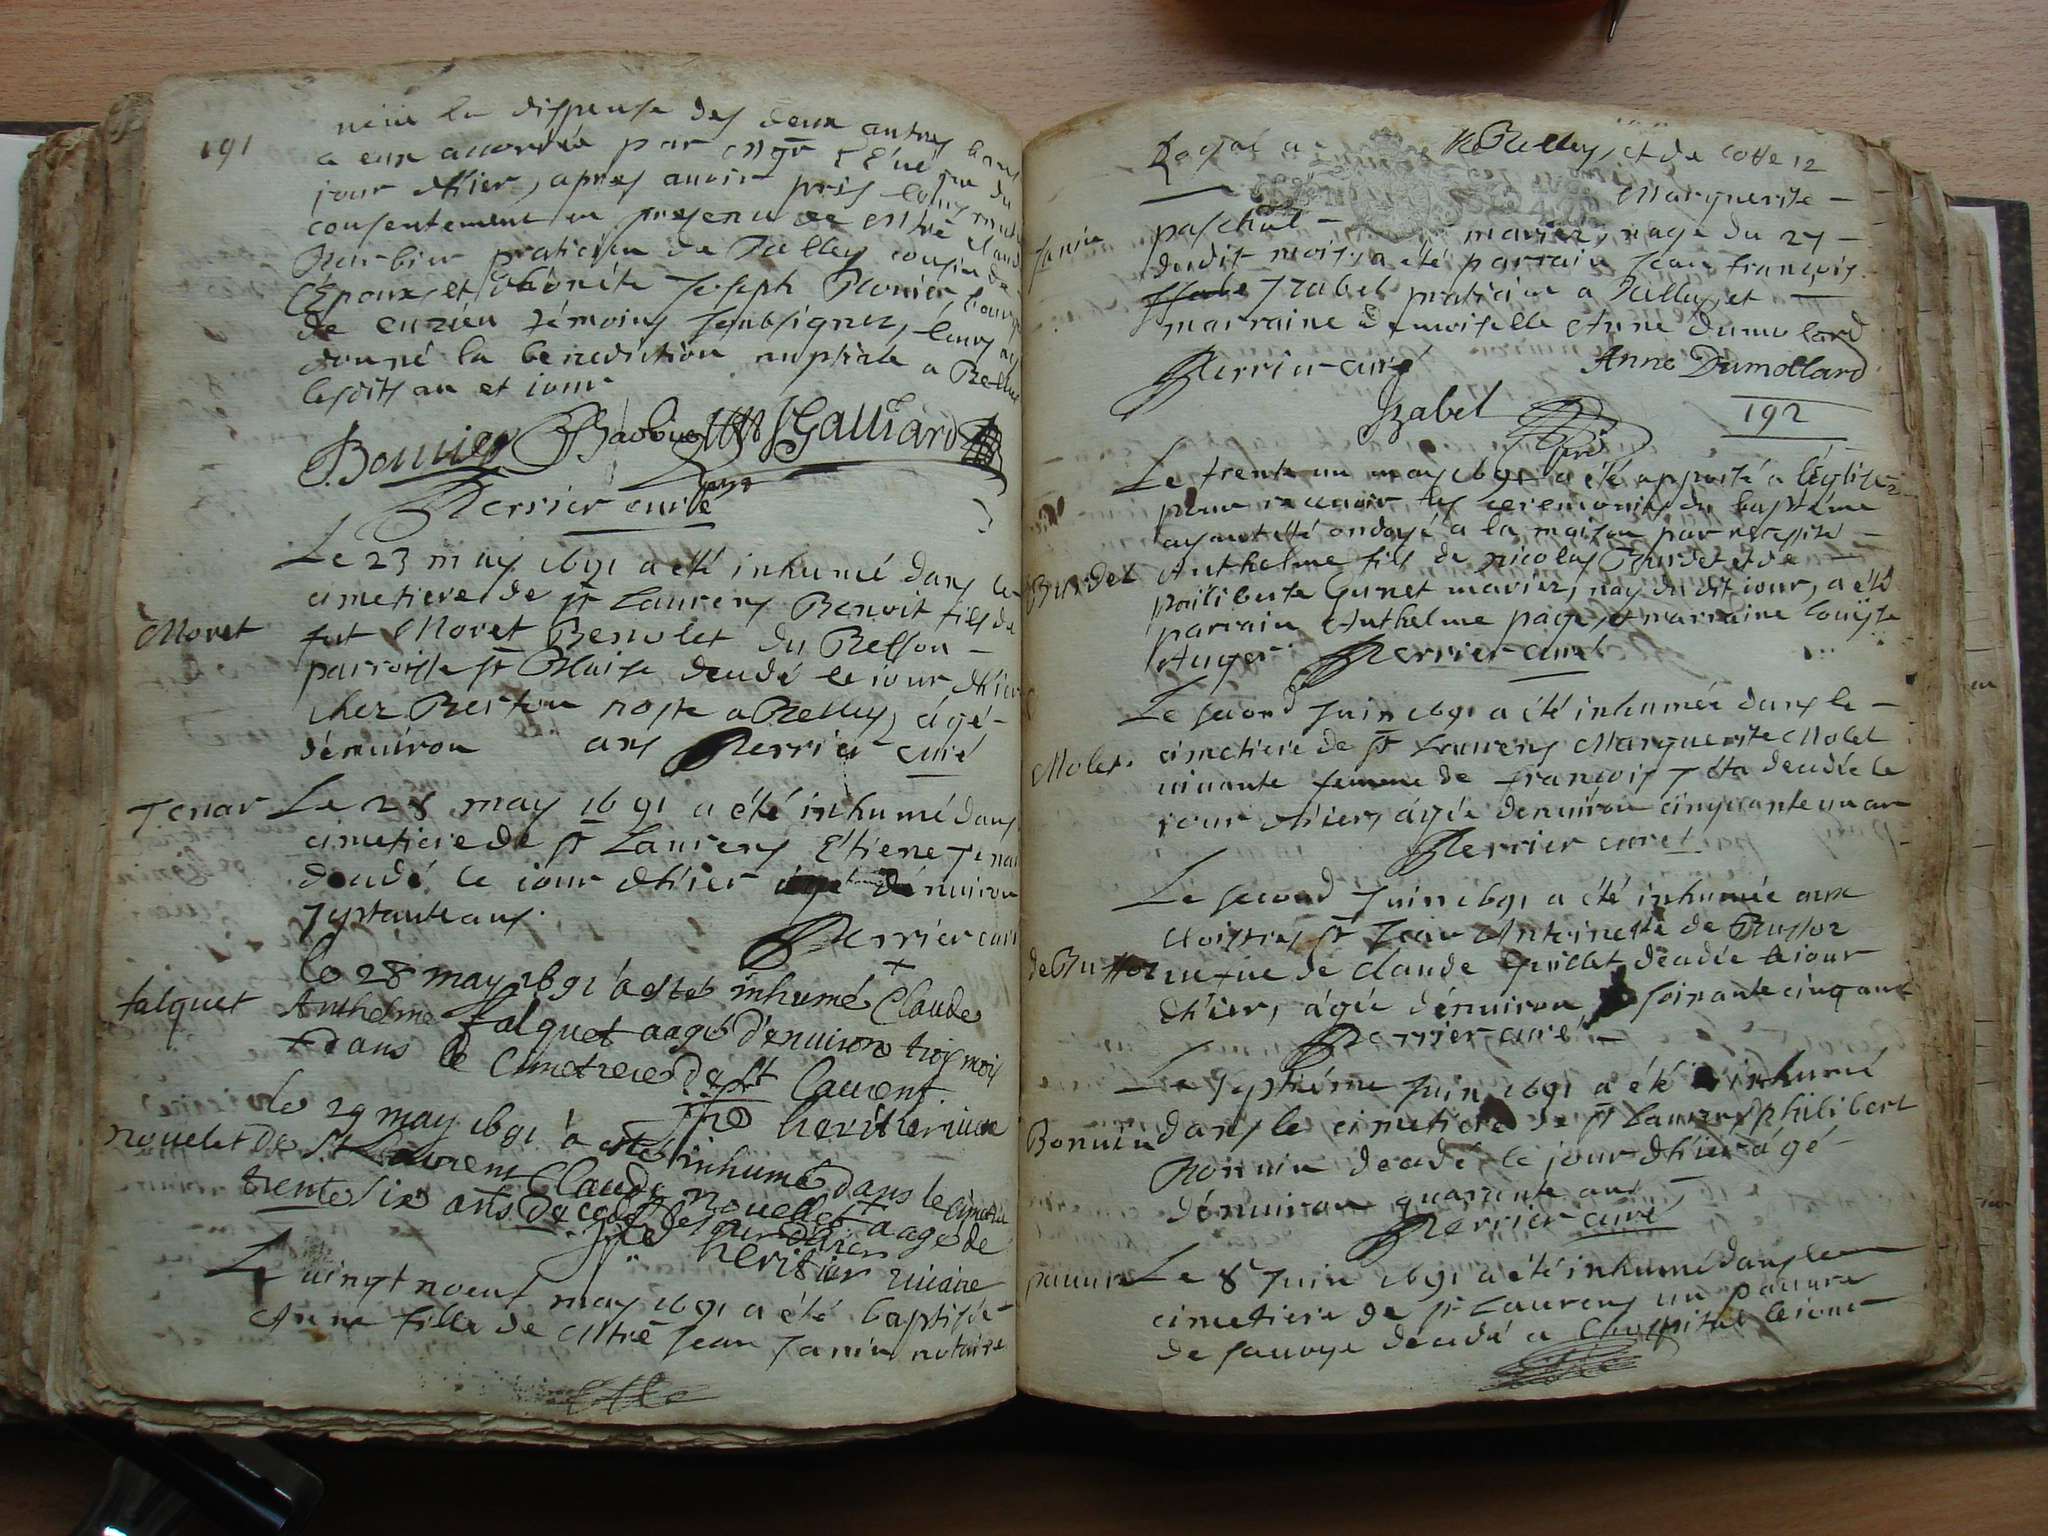 191
la dispense des deux autres bans
a eux accordée par Mgr l'Evêque du
jour d'hier, apres avoir pris leur mutu
consentement en presence de Mtre Claud
Barbier praticien de Belley cousin de
l'Epoux, et d'honête Joseph Bonier, bourg
de Cuzieu témoins soubsignez, leurs ay
donné la benediction nuptiale a Belley
lesdits an et jour
J. Bonnier Barbier J Galliard
Perrier curé
Le 23 may 1691 a été inhumé dans le
Moret
cimetiere de st Laurens Benoit fils de
fut Moret Benolet du
parroisse st Blaise decedé le iour d'hier
chez Berton hoste a Belley, âgé
d'enuiron ans Perrier curé
Tenar
Le 28 may 1691 a été inhumé dans
cimetiere de st Laurens Etiene Tenar
decedé le iour d'hier d'enuiron
septante ans.
Perrier curé
le 28 may 1691 a esté inhumé Claude
falquet
Anthelme falquet aagé d'enuiron trois mois
+ dans le Cimetiere de st Laurent.
heritier vicaire
le 29 may 1691 a esté inhumé dans le Cimetie
nouelet
de st Laurent Claude nouellet aagé de
trente six ans decedé le jour d'hier
heritier vicaire
Le uingt noeuf may 1691 a été baptisée
Anne fille de Mtre Jean Janin notaire
Royal a Belley, et de
Marguerite
Janin
paschal mariez, nage du 27
dudit mois, a été parrain Jean françois
Izabel praticien a Belley, et
marraine demoiselle Anne dumolard
Perrier curé Anne Dumollard
Izabel
192
Le trente un may 1691 a été apporté a l'églize
pour receuoir les ceremonies du baptéme
ayant été ondoyé a la maison par necessité
Burdet
Anthelme fils de nicolas Burdet et de
philiberte Gunet mariez, nay dudit iour, a été
parrain Anthelme page, et marraine louyse
Auger Perrier curé
Le second Juin 1691 a été inhumée dans le
Molet.
cimetiere de st Laurens Marguerite Molet
uiuante femme de françois decedée le
iour d'hier, agée d'enuiron cinquante un an
Perrier curé
Le second Juin 1691 a été inhumée aux
cloistres st Jean Antoinette de Bussoz
de Bussoz
uefue de Claude Guillet decedée le iour
d'hier, âgée d'enuiron soixante cinq ans
Perrier curé
Le septiéme Juin 1691 a été inhumé
Bonuin
dans le cimetiere de st Laurens philibert
Bonuin decedé le jour d'hier âgé
d'enuiron quarante ans
Perrier curé
pauure
Le 8 Juin 1691 a été inhumé dans le
cimetiere de st Laurens un pauure
de sauoye decedé a l'hospital le iour